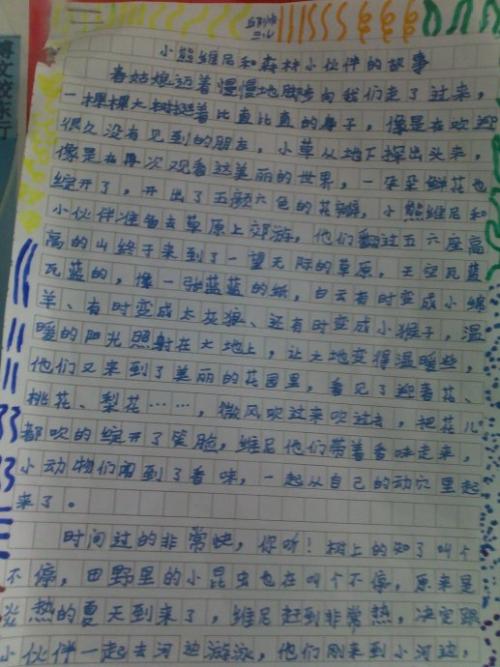 小熊维尼和森林小伙伴的故事
春姑娘迈着慢慢地脚步向我们走了过来，
一棵棵大树挺着比直比直的身子，像是在欢迎
很久没有见到的朋友，小草从地下探出头来，
像是在再次观看这美丽的世界，一朵朵鲜花也
绽开了，开出了五颜六色的花瓣，小熊维尼和
小伙伴准备去草原上郊游，他们翻过五六座高
高的山终于来到了一望无际的草原，天空瓦蓝
瓦蓝的，像一张蓝蓝的纸，白云有时变成小绵
羊、有时变成大灰狼、还有时变成小猴子，温
暖的阳光照射在大地上，让大地变得温暖些，
他们又来到了美丽的花园里，看见了迎春花、
桃花、梨花……，微风吹过来吹过去，把花儿
都吹的绽开了笑脸，维尼他们带着香味走来，
小动物们闻到了香味，一起从自己的动穴里起
来了。
时间过的非常快，你听！树上的知了叫个
不停，田野里的小昆虫也在叫个不停，原来是
炎热的夏天到来了，维尼赶到非常热，决定跟
小伙伴一起去河边游泳，他们刚来到小河边，